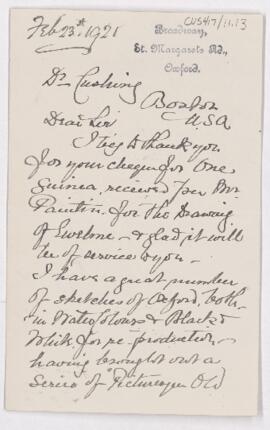 CUS417/11.13
Feb 23rd. 1921
Broadway,
St. Margarets Rd.,
Oxford.
Dr Cushing
Boston
U.S.A
Dear Sir
I beg to thank you
for your cheque for One
Guinea, received per Mr
for the Drawing
of Ewelme – & glad it will
be of service to you –
I have a great number
of sketches of Oxford, both
in Water Colours & Black &
White for re-production –
having brought out a
Series of "Picturesque Old